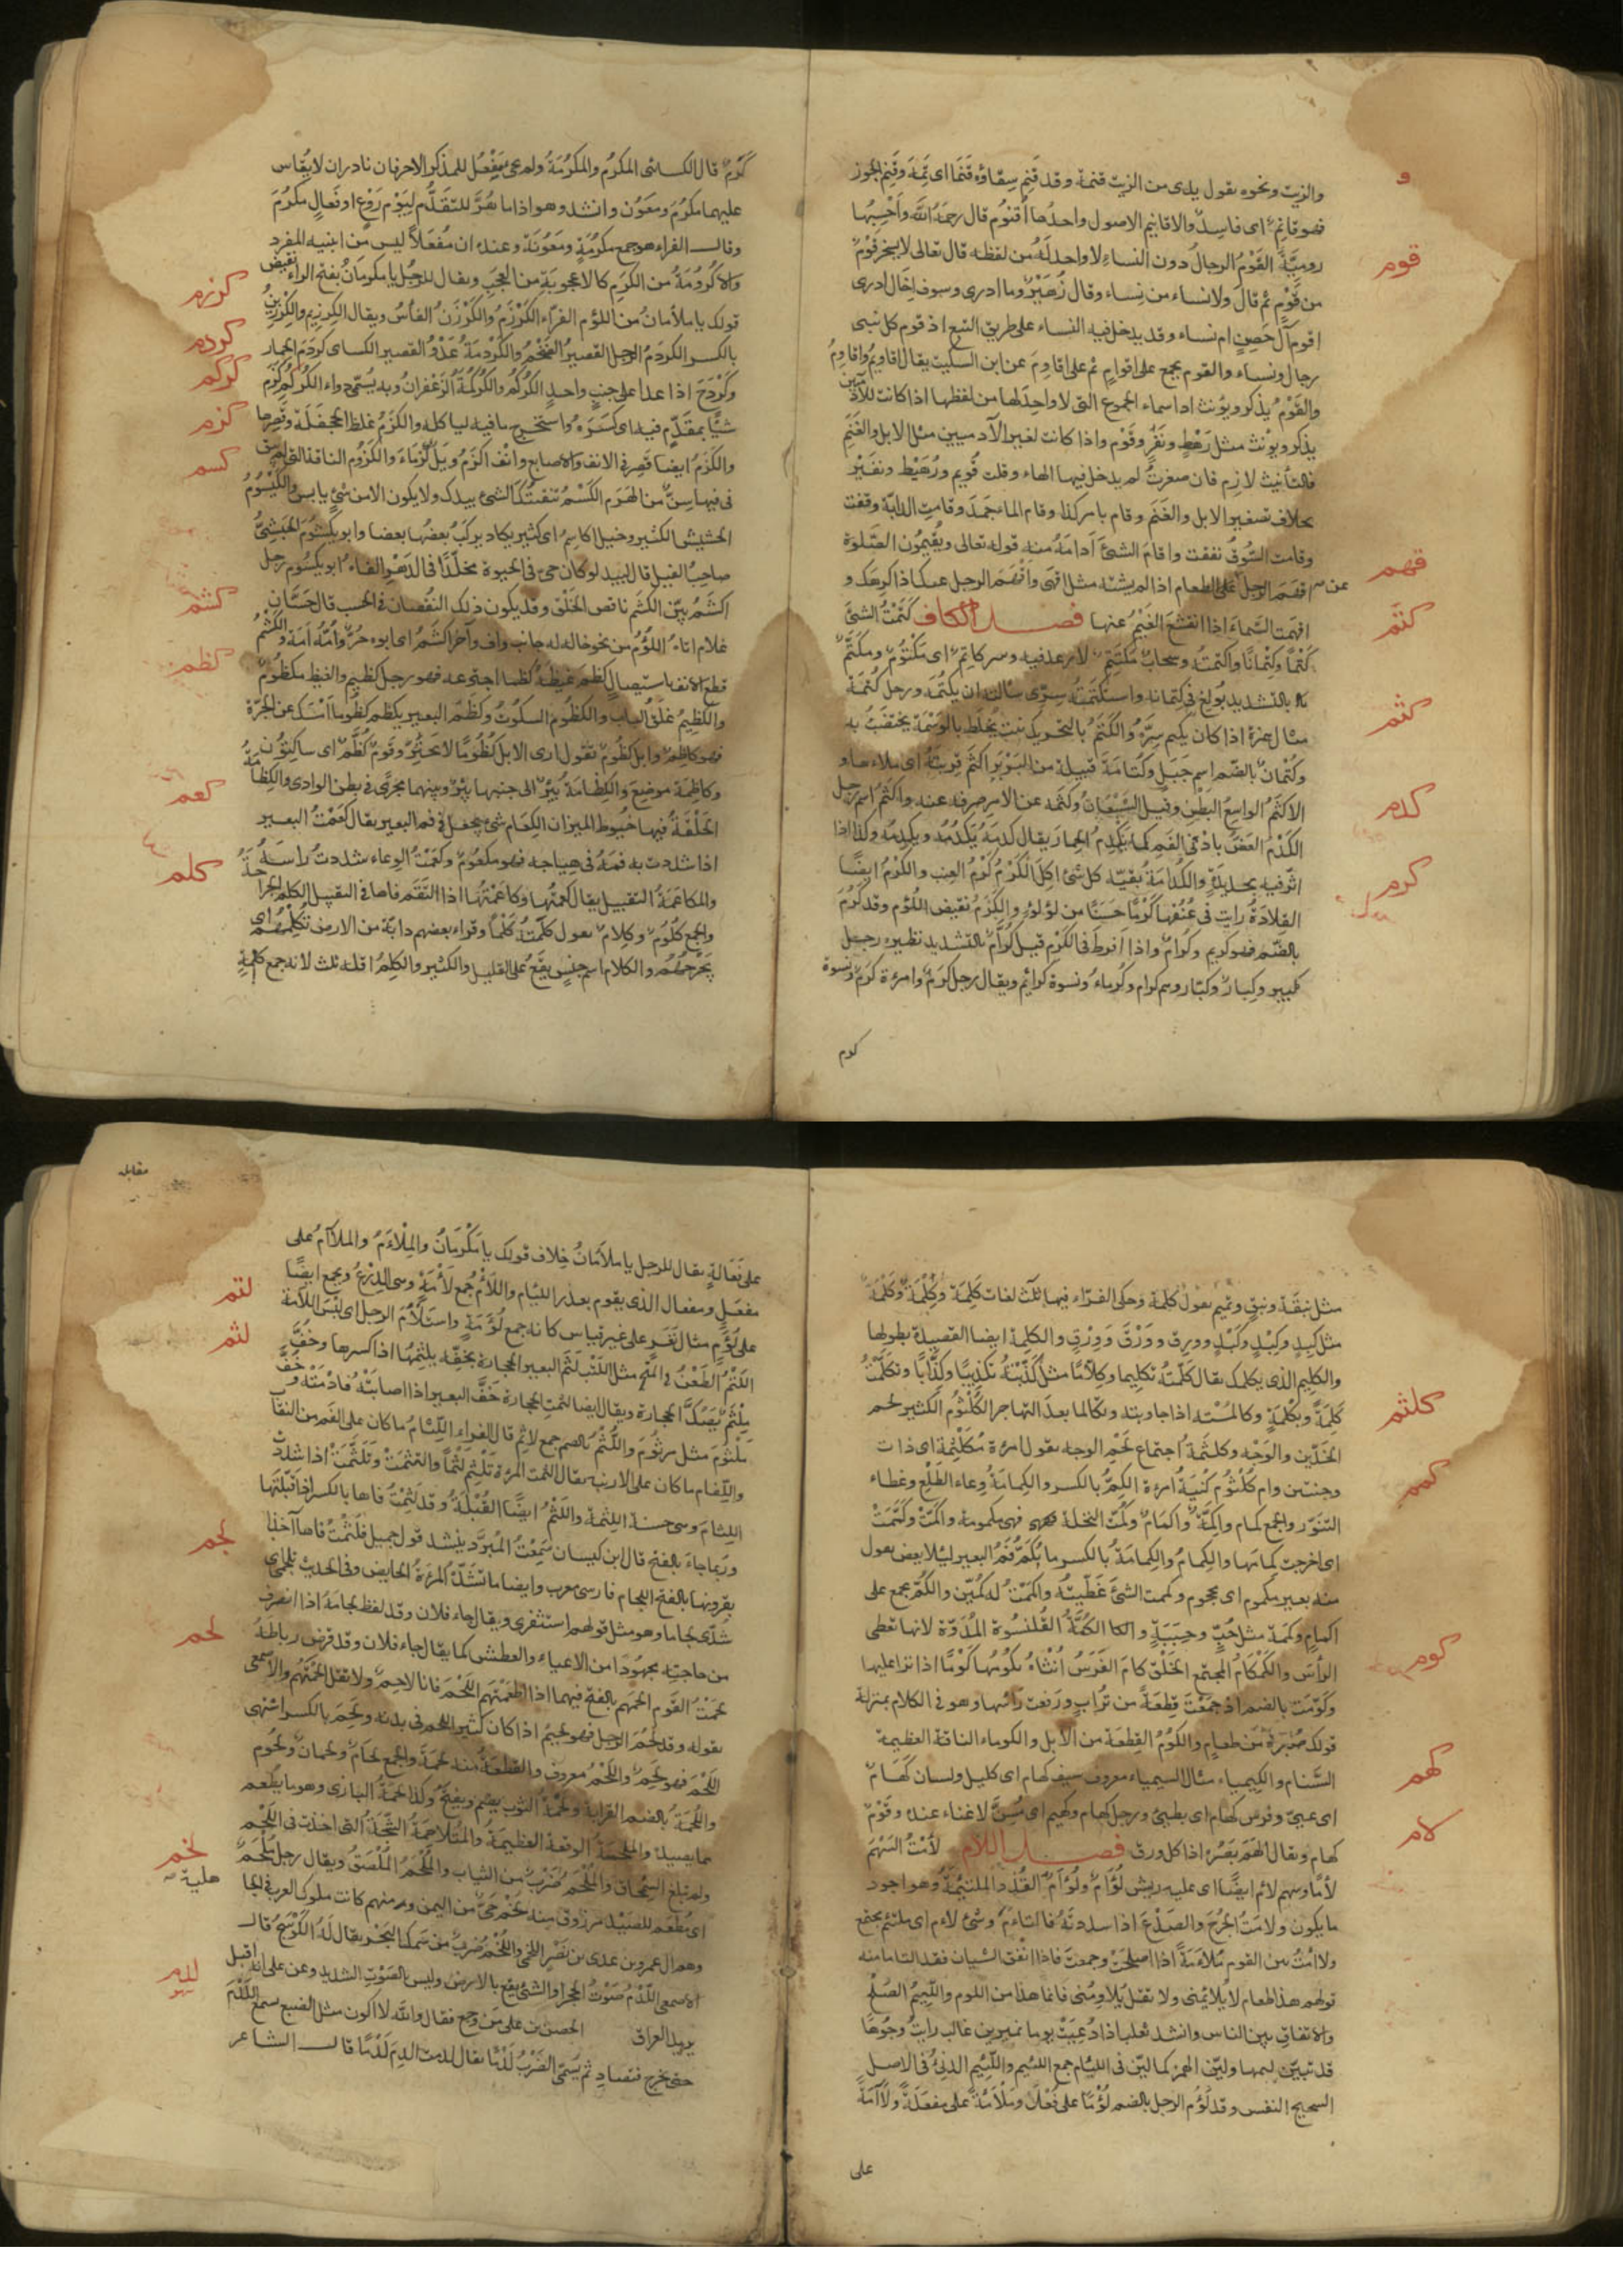 والزيت ونحوه يقول يدى من الزيت قنمة وقد قَنِمَ سِقاؤه قَنَمًا اى تَمِهَ وقَنِمَ الجوز
فهو قانِمٌ اى فاسِدٌ والاقانيم الاصول واحدُها أُقنُومٌ قال رحمهُ اللّٰه وأحْسِبُها
قوم
روميَّةً القَوْمُ الرجالُ دون النساءِ لا واحد لَهُ من لفظه قال تعالى لا يسخر قَوْمٌ
من قَوْمٍ ثم قال ولا نساء من نِساء وقال زُهَيْرٌ وما ادرى وسوف إخال ادرى
اقوم آل حَصنٍ ام نساء وقد يدخل فيه النساء على طريق التبع اذ قوم كل نبى
رجال ونساء والقوم يجمع على اقوامٍ ثم على اقاوِمَ عن ابن السكيت يقال اقاويمُ واقاوِمُ
والقَوْمُ يذكر ويؤنث اذ اسماء الجموع التى لا واحد لها من لفظها اذا كانت للآدميين
يذكر ويؤنث مثل رَهْطٍ ونَفَرٍ وقَوْم واذا كانت لغير الآدميين مثل الابل والغَنَمِ
فالتأنيث لازم فان صغرتَ لم يدخل فيها الهاء وقلت قُوَيم ورُهَيْط ونفَيْر
بخلاف تصغير الابل والغَنَم وقام بامر كذا وقام الماءُ جَمَدَ وقامت الدابّة وقفت
وقامت السُّوقُ نفقت واقامَ الشئَ أدامَهُ منه قوله تعالى ويُقيمُون الصَّلوٰةَ
قهم
قهَمَ الرجل على الطعام اذا لم يشته مثل اقهى واقْهَمَ الرجل عنك اذا كرهك و
كتم
اقهمت السَّماءُ اذا انقشعَ الغَيْمُ عنها فصل الكاف كَتَمْتُ الشئَ
كَتْمًا وكِتْمانًا واكتمتُه وسحابٌ مُكتَتِمٌ لا رعد فيه وسر كاتِمٌ اى مَكْتُومٌ ومكَتَّمٌ
بالتشديد بُولِغ فى كِتمانه واستكتَمتُه سِرّى سألته ان يكتُمَه ورجل كُتَمَة
كثم
مثال همزة اذا كان يكتم سِرَّه والكَتَمُ بالتحريك نبت يُخلَط بالوَسْمَة يختضَبُ به
وكُتمانُ بالضم اسم جَبَل وكُتامَة قبيلة من البَرْبَر اكثَمَ قربتَهُ اى ملاءها و
الاكثَمُ الواسِعُ البَطْنِ وقيل الشَّبْعَانُ وكثَمَه عن الامر صرفه عنه واكثَمُ اسم رجل
كدم
الكَدْمُ العَضُّ بادْنى الفَمِ كما يَكْدِمُ الحِمارُ يقال كدَمَهُ يَكْدُمُه ويكدِمُه وكذا اذا
اثر فيه بحديدةٍ والكُدامَةُ بقيّة كل شئ اكِلَ
كرم
الكَرْمُ كَرْمُ العِنب والكَرْمُ ايضًا
القِلادَةُ رايت فى عُنُقها كَرْمًا حَسَنًا من لؤلؤٍ والكَرَمُ نقيض اللُّؤْم وقد كَرُمَ
بالضّم فهو كريم وكُرامٌ واذا افرط فى الكَرَم قيل كُرّامٌ بالتشديد نظيره رجل
كبير وكِبار وكبّار وهم كرام وكُرَماءُ ونسوة كرائم ويقال رجل كَرَمٌ وامرءة كرَمٌ ونسوة
كرم
كَرَمٌ قال الكسائى المكرُمُ والمكرُمَةُ ولم يجئ مَفْعُل للمذكر الا حرفان نادران لا يُقاس
عليهما مكرُمٌ ومعوُن وانشد وهو اذا ما هُزَّ للتقَدُّم لِيَوْمِ رَوْعٍ او فَعالِ مكرُمِ
وقال الفراء هو جمع مكرُمَةٍ ومَعُونَة وعنده ان مَفعُلًا ليس من ابنيه المفرد
والاُكرُومَةُ من الكَرَم كالاعجوبَة من العَجَبِ ويقال للرجُل يا مكرمانُ بفتح الراء نقيض
كرزم
قولك يا ملأمان من اللؤم الفرّاء الكَرْزَمُ والكَرْزَنُ الفأسُ ويقال الكِرزِيم والكِرْزِينُ
كردم
بالكسر الكردَمُ الرجل القصيرُ الضَّخمُ والكَرْدمَةُ عَدْوُ القصير الكسائى كردَمَ الحِمار
كركم
وكَرْدَحَ اذا عدا على جنبٍ واحدٍ الكُركُمُ والكُركُمَةُ الزعْفرانُ وبه يُسَمّى دواء الكُركُم
كزم
شيأً بمقَدَّم فيه اى كسَرَه واستخرج ما فيه لياكله والكَزَمُ غلظ الجحفَلَة وقصرها
والكَزَمُ ايضا قصر فى الانف والاصابع وانْف اكزَمُ ويدٌ كَزماء والكَزوُم الناقة التى لم يبق
كسم
فى فيها سِنٌّ من الهَرَم الكَسْمُ تفتيتُكَ الشئ بيدك ولا يكون الا من شئ يابس والكَيْسُومُ
الحشيش الكثير وخيل اكاسِمُ اى كثير يكاد يركبُ بعضُها بعضا وابو يكسُومَ الحَبشِىُّ
صاحِبُ الفيل قال لبيد لو كان حىٌّ فى الحيوة مخلّدًا فى الدهرِ الفاهُ ابو يكسُوم رجل
كشم
اكشَمُ بيّن الكشَمِ ناقص الخَلْق وقد يكون ذلك النقصان فى الحسب قال حَسّان
غلام اتاهُ اللُّؤْمُ من نحو خاله له جانب وافٍ وآخر اكشَمُ اى ابوه حُرٌّ وأمُّه امَة والكشْمُ
كظم
قطع الانف باستيصالٍ كظم غيظه كظما اجترعه فهو رجل كظيم والغيظ مكظُومٌ
والكظيمُ غَلَقُ الباب والكظُومُ السكوتُ وكظَمَ البعير يكظم كظُومًا امْسَك عن الجِرّة
فهو كاظِمٌ وابل كظُوم تقول ارى الابل كُظُومًا لا تَجْتَرُّ وقوم كُظَّمٌ اى ساكِتُون
وكاظمة موضِعٌ والكِظامَةُ بِئرٌ الى جنبها بِئرٌ وبينهما مجرًى فى بطن الوادى والكِظامَةُ
كعم
الحَلْقَةُ فيها خُيوط الميزان الكِعَام شئٌ يجعل فى فم البعير يقال كعَمْتُ البعير
اذا شددت به فمَهُ فى هِياجه فهو مكعُوم وكعَمْتُ الوِعاء شددتُ راسَهُ
كلم
والمكاعَمَةُ التقبيل يقال كعمتُها وكاعَمْتُها اذا التَقَم فاها فى التقبيل الكلمُ الجِراحَةُ
والجمع كلُومٌ وكِلام تقول كلمتُهُ كَلْمًا وقراء بعضهم دابّة من الارض تَكْلِمُهُم اى
تَجْرحُهُم والكلام اسم جنسٍ يقَعُ على القليل والكثير والكلِمُ اقله ثلث لانه جمع كَلِمَة
مثل نبِقَة ونبِقٍ وتميم تقول كِلْمة وحكى الفراء فيها ثلث لغات كَلِمَة وكِلْمَةٌ وكَلْمَةٌ
مثل كَبِدٍ وكِبْدٍ وكَبْدٍ ووَرِق ووَرْق ووِرْقٍ والكلِمة ايضا القصيدة بطولها
والكلِيم الذى يكلمك يقال كلّمتُه تكليما وكِلّامًا مثل كَذَّبْتُه تكذِيبًا وكِذّابًا وتكَلّمتُ
كلثم
كلِمَةً وبكلِمَةٍ وكالمتُه اذا جاوبته وتكالما بعد التهاجر الكُلثُومُ الكثير لحم
الخَدَّين والوَجْه وكلثَمَةُ اجتماع لَحْمِ الوجه تقول امرءة مُكَلْثَمة اى ذات
كمم
وجنتين وام كُلْثُوم كُنيَةُ امرءة الكِمُّ بالكسر والكِمامَةُ وعاء الطَّلْعِ وغطاء
النَّوَر والجمع كمام واكِمَّةٌ واكمامٌ وكُمَّت النخلة فهى مكمومة واكَمَّتْ وكَمَّمَتْ
اى اخرجت كمامَها والكِمامُ والكِمامَةُ بالكسر ما يُكَمُّ فمُ البعير لئلا يعض تقول
منه بعير مكموم اى محجوم وكممت الشئَ غَطَّيتُه واكمَمْتُ له كمّين والكُمّ يجمع على
اكمامٍ وكِمَمَة مثل حُبٍّ وحِبَبَةٍ والكُمَّةُ القُلنسُوَة المُدَوَّرَة لانها تغطى
كوم
الرأس والكَمْكامُ المجتمع الخَلْق كامَ الفَرَسُ انثاهُ يكُومُها كَوْمًا اذا نزا عليها
وكَوّمْتُ بالضم اذ جَمَعْتَ قِطعَةً من تُرابٍ ورَفعت رأسَها وهو فى الكلام بمنزلة
قولك صُبْرَة من طعامٍ والكَوْمُ القِطعَة من الابل والكوماء الناقة العظيمة
كهم
السَّنام والكيمياء مثال السيمياء معروف سيف كهام اى كليل ولسان كَهامٌ
اى عيىٌّ وفرس كهام اى بطىٌ ورجل كهام وكهيم اى مُسِنٌّ لا غناء عنده وقَوْم
لأم
كهام ويقال اكهَمَ بَصَرُه اذا كل ورق فصل اللام لأمْتُ السَهْمَ
لأمًا وسهم لام ايضًا اى عليه ريش لُؤَامٌ ولُؤامٌ القُذَذُ الملتئمةُ وهو اجود
ما يكون ولأمْتُ الجُرحَ والصَدْعَ اذا سددتَهُ فالتاءَمَ وشئ لأم اى ملتئم مجتمع
ولاءمْتُ بين القوم مُلاءمَةً اذا اصلحتَ وجمعتَ فاذا اتّفق الشيآن فقد التاما منه
قولهم هذا طعام لا يُلائِمُنى ولا تقُل يُلاوِمُنى فانما هذا من اللوم واللِّيمُ الصُلْحُ
والاتفاق بين الناس وانشد ثعلب اذا دُعِيَتْ يوما نمير بن غالب رايتُ وجُوهًا
قد تبيّن لِيمها وليّن الهمز كما ليّن فى اللِيام جمع اللئيم واللئيم الدنىُّ فى الاصل
الشحيح النفس وقد لَؤُمَ الرجل بالضم لُؤْمًا على فُعْل ومَلأَمَةً على مفعَلَةٍ ولَآمَةً
على
مقابله
على فَعَالةٍ يقال للرجل يا ملأمَانُ خِلاف قولك يا مَكْرَمَانُ والمِلْأَمُ والملآمُ على
مفعَل ومفعال الذى يقوم بعذر اللئام واللَّأْمُ جمع لَأْمَةٍ وهى الدِرْعُ ويجمع ايضًا
على لُؤَمٍ مثال نُغَرٍ على غير قياس كانه جمع لُؤْمَةٍ واستَلْأَمَ الرجل اى لبسَ اللأمة
لتم
لثم
اللَتْمُ الطَعْنُ فى المنحر مثل اللَتْب لَثَمَ البعير الحجارة بخُفِّه يلثِمُها اذا كسرها وخُفّ
مِلْثَم يَصُكّ الحجارة ويقال ايضا لثمت الحجارة خُفَّ البعير اذا اصابَتْه فادْمَتْه وخُفّ
ملثوم مثل مرثُوم واللُّثْمُ بالضم جمع لاثِم قال الفراء اللِّثامُ ما كان على الفَم من النقاب
واللِّفام ما كان على الارنبة يقال لثمت المرءة تَلْثِمُ لَثْمًا والتثمَتْ وتَلَثَّمَتْ اذا شدّت
اللِثامَ وهى حسنة اللِثمة واللَثْمُ ايضًا القُبْلَةُ وقد لَثِمْتُ فاها بالكسر اذا قبّلتَها
وربما جاءَ بالفتح قال ابن كيسان سَمِعْتُ المُبرَّد ينشد قول جميل فَلَثَمْتُ فاها آخذا
لجم
بقرونها بالفتح اللجام فارسى معرب وايضا ما تشدّهُ المرءةُ الحايض وفى الحديث تلجَّمى اى
شُدّى لجاما وهو مثل قولهم استثفرى ويقال جاء فلان وقد لفظ لجامَهُ اذا انصرف
لحم
من حاجته مجهُودًا من الاعياءِ والعطش كما يقال جاء فلان وقد قرض رباطهُ
لحَمْتُ القَوْم الحَمهُم بالفتح فيهما اذا اطعمتَهم اللَّحْمَ فانا لاحِمٌ ولا تقل الحَمْتُهُم والاصمعى
يقوله وقد لحُمَ الرجل فهو لحيمٌ اذا كان كثير اللحم فى بدنه ولَحِمَ بالكسر اشتهى
اللحْمَ فهو لحِمٌ واللَحْمُ معروف والقطعَة منه لحمَة والجمع لحام ولحمان ولُحُوم
واللُحمَةُ بالضم القرابة ولُحمَةُ الثوب يضم ويفتح وكذا لحمَةُ البازى وهو ما يطعم
مما يصيده والملحمة الوقعة العظيمة والمُتلاحِمَةُ الشَجّةُ التى اخذت فى اللحْم
ولم تبلغ السِمْحاق والمُلْحَمُ ضَرْبٌ من الثياب والمُلْحَمُ المُلْصَقُ ويقال رجل مُلحَمٌ
لخم
اى مُطعَم للصَيْد مرزوق منه لَخْمٌ حىٌّ من اليمن ومنهم كانت ملوك العرب فى الجاهلية
وهم آل عمرو بن عدى بن نَصْر اللخمى واللُخْمُ ضربٌ من سمك البحر يقال لَهُ الكَوْسَجُ قال
لدم
الاصمعى اللَّدْمُ صَوْتُ الحجر او الشئ يقع بالارض وليس بالصَوْتِ الشديد وعن على انه اقبل
يريد العراق الحسن بن على من وجع فقال والله لا اكون مثل الضبع تسمع اللَدْمَ
حتى تخرج فتصاد ثم يُسَمّى الضَرْبُ لَدْمًا يقال لدمت الدِمُ لَدْمًا قال الشاعر